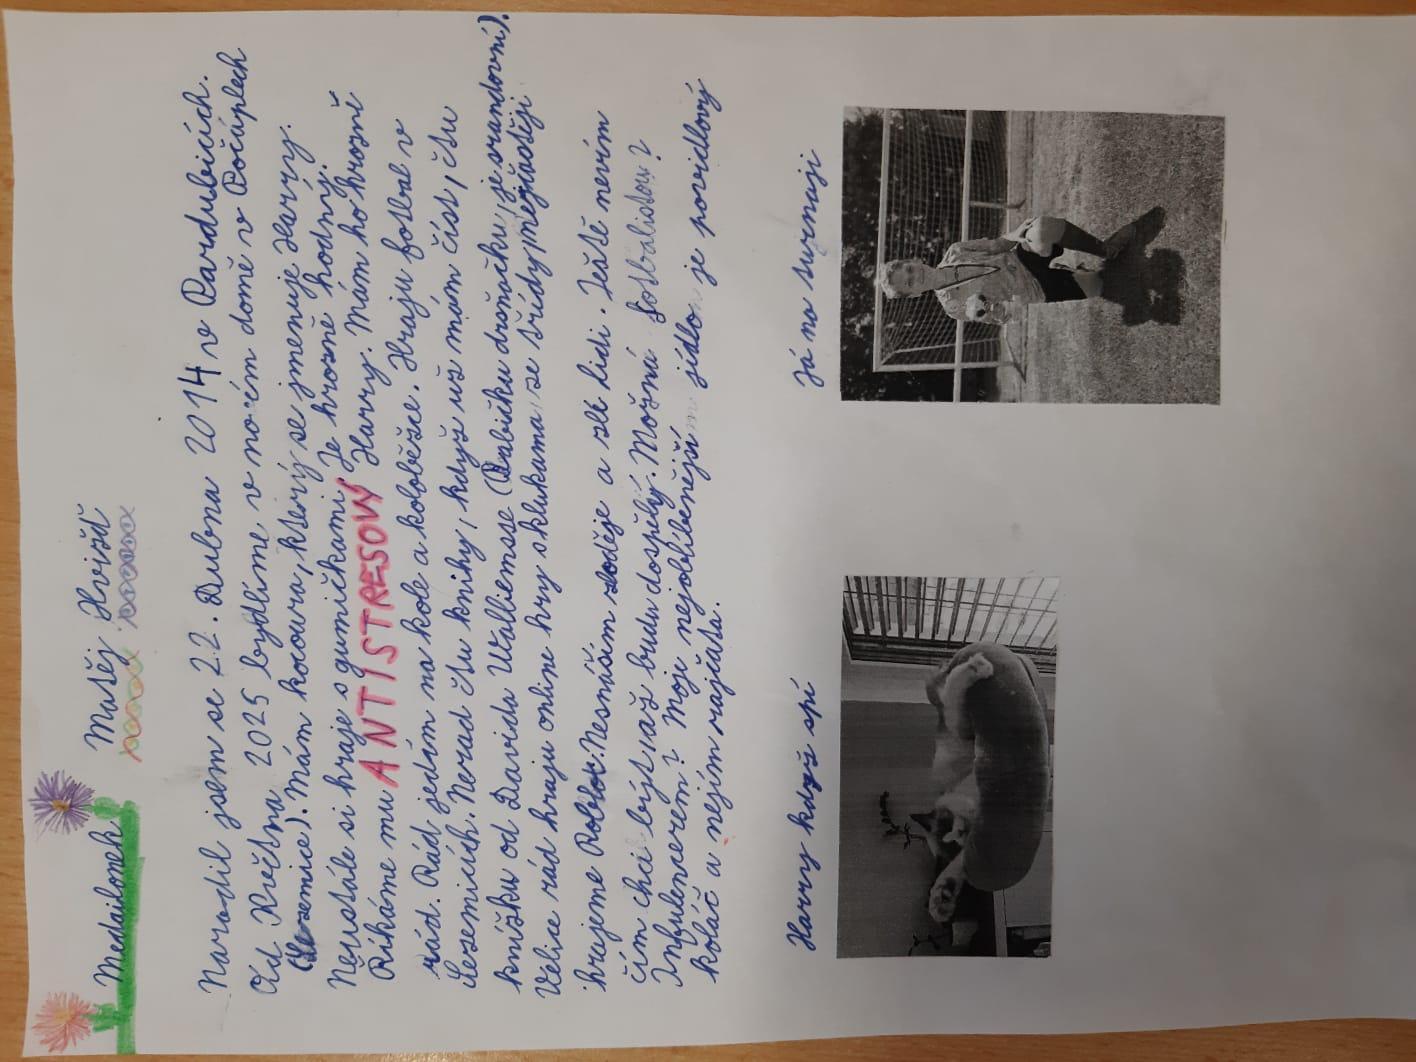 Medailonek
Matěj Hvišď
Narodil jsem se 22. Dubna 2014 v Pardubicích.
Od Května 2025 bydlíme v novém domě v Počáplech
(Sezemice). Mám kocoura, který se jmenuje Harry.
Neustále si hraje s gumičkami. Je hrozně hodný.
Říkáme mu ANTISTRESOVÝ Harry. Mám ho hrozně
rád. Rád jedám na kole a koloběžce. Hraju fotbal v
Sezemicích. Nerad čtu knihy, když už mám číst, čtu
knížku od Davida Walliamse (Babičku drsňačku, je srandovní).
Velice rád hraju online hry s klukama ze třídy, nejčastěji
hrajeme Roblox. Nesnáším zloděje a zlé lidi. Ještě nevím
čím chci být, až budu dospělý. Možná fotbalistou?
Influencerem? Moje nejoblíbenější jídlo je povidlový
koláč a nejím rajčata.
Harry když spí
Já na turnaji